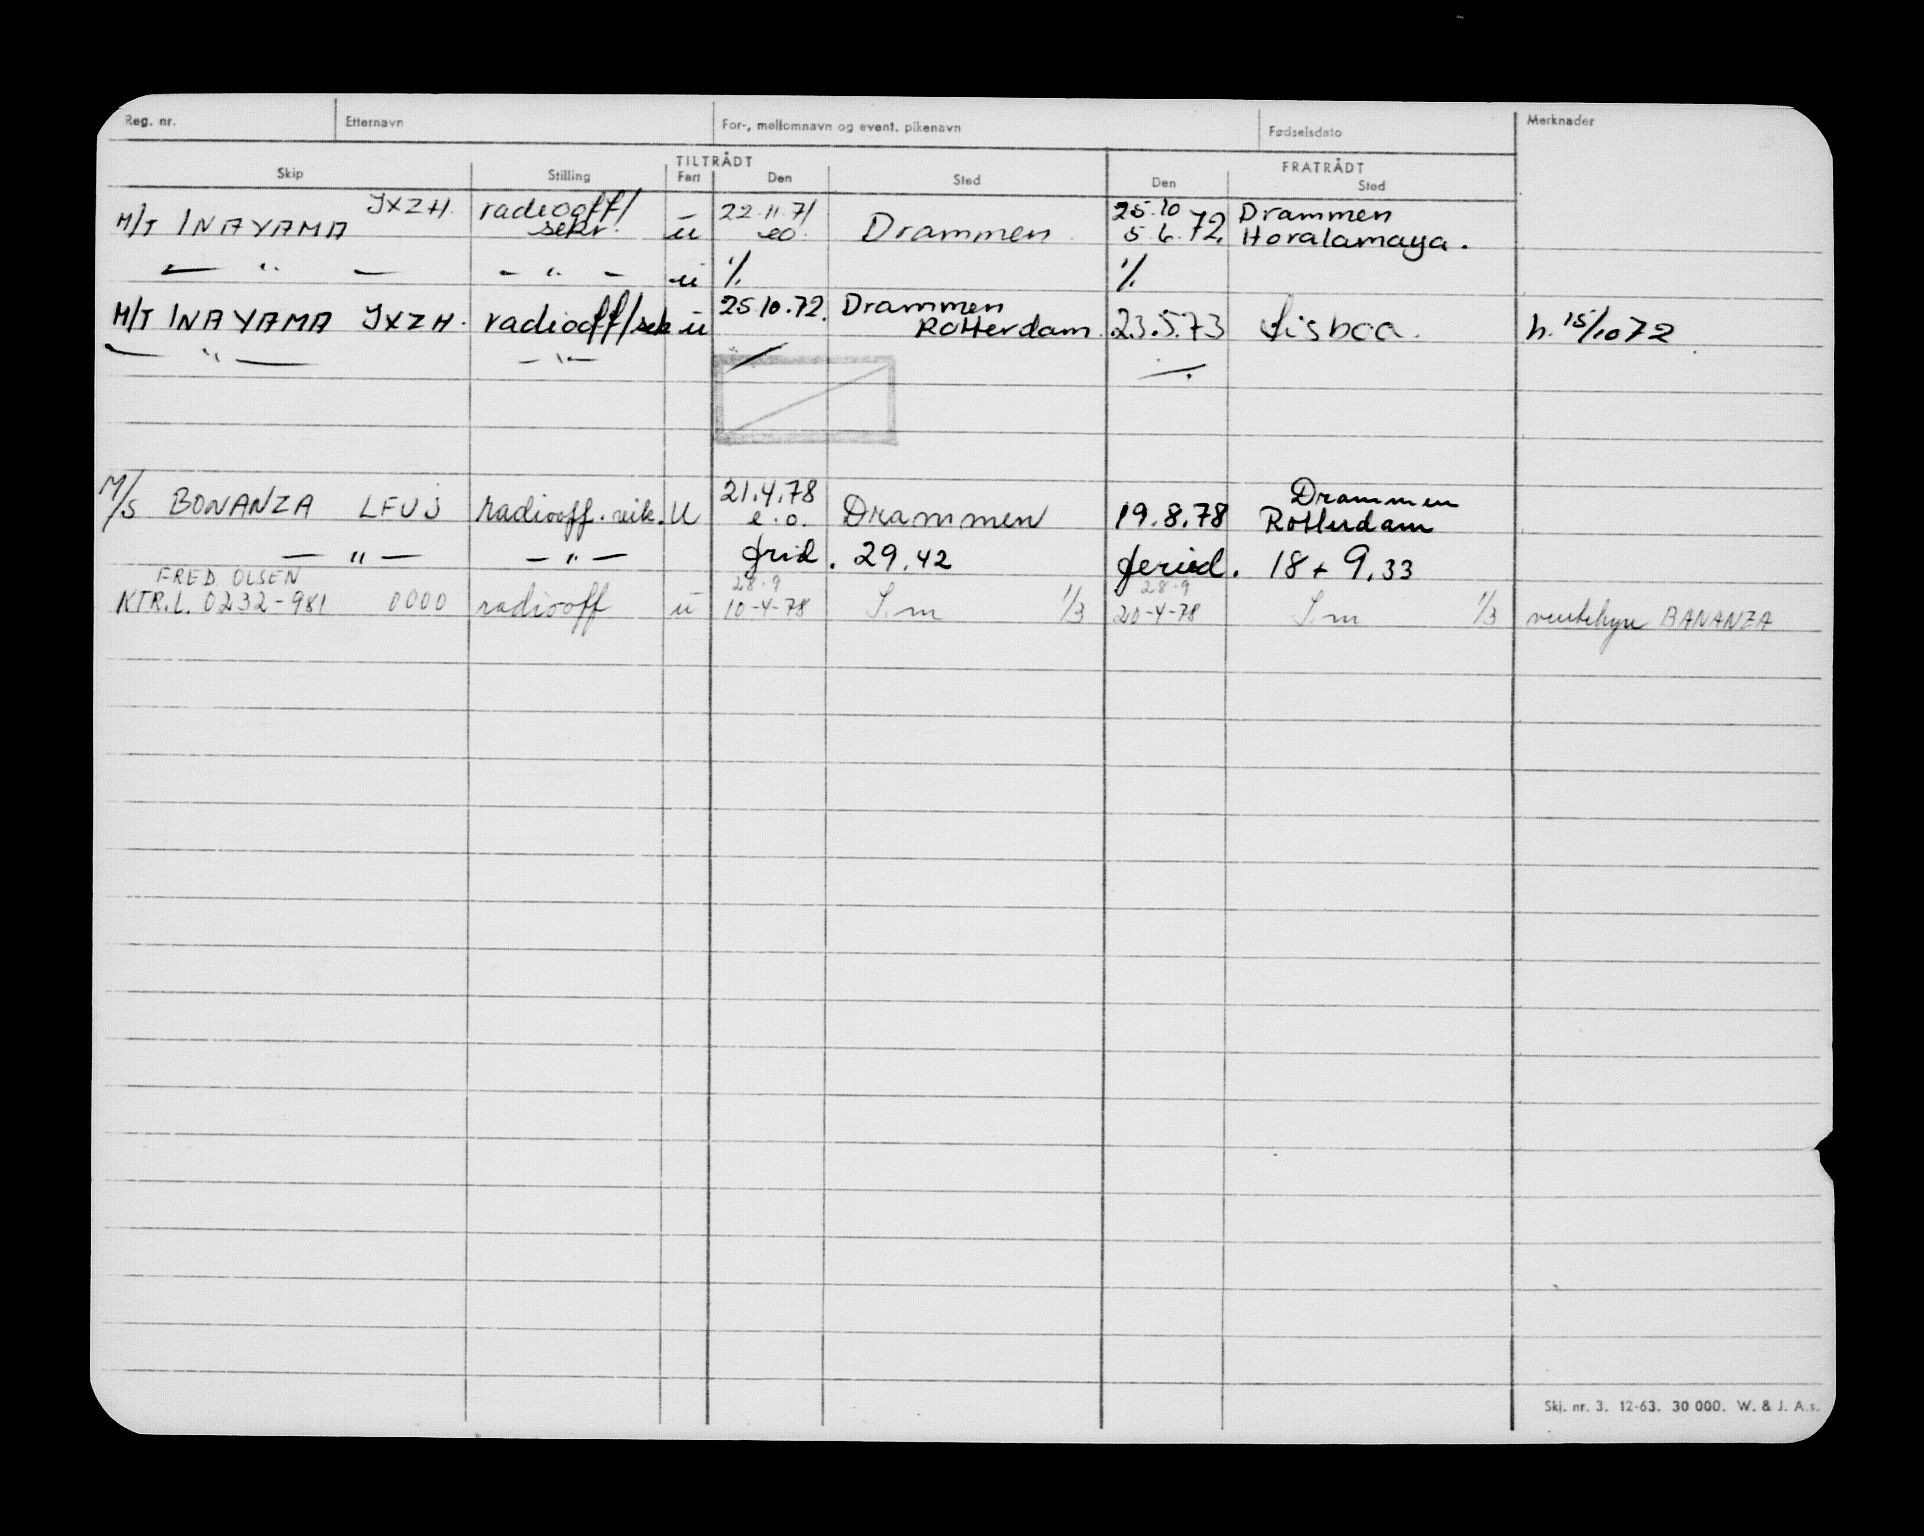 Reg. nr. Etternavn For-, mellomnavn og event. pikenavn Fødselsdato Merknader
TILTRÅDT FRATRÅDT
Skip Stilling Fart Den Sted Den Sted
M/T INAYAMA JXZH. radiooff/ sekr. ū 22.11.71 eo. Drammen 25.10 5.6.72. Drammen Horalamaya.
— " — — " — ū % %
M/T INAYAMA JXZH. radiooff/sek ū 25.10.72. Drammen Rotterdam. 23.5.73 Lisboa. h. 15/10 72
— " — — " —
M/S BONANZA LFUJ radiooff. vik. U 21.4.78 e.o. Drammen 19.8.78 Drammen Rotterdam
— " — — " — frid. 29.42 feried. 18 + 9.33
FRED OLSEN 28.9 28.9
KTR.L. 0232-981 0000 radiooff ū 10-4-78 S.m 1/3 20-4-78 S.m 1/3 ventehyre BANANZA
Skj. nr. 3. 12-63. 30 000. W. & J. A.s.